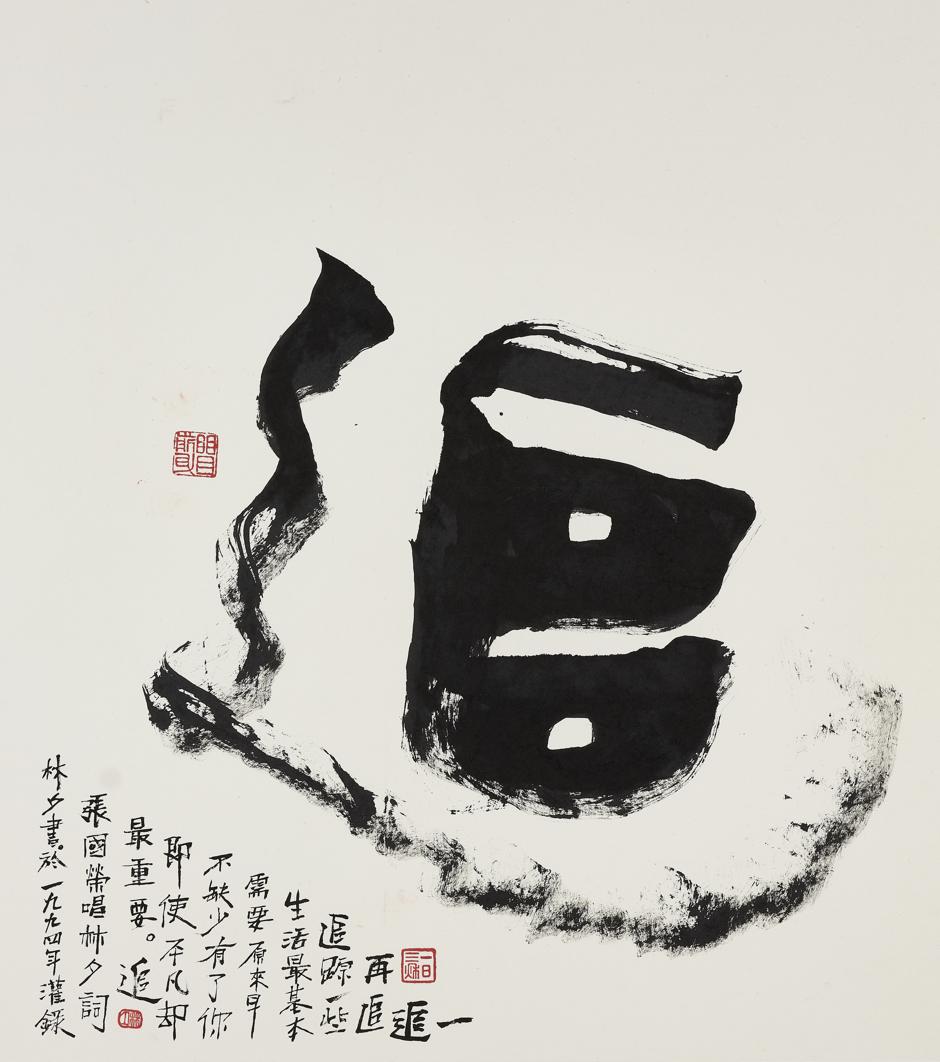 追
一追
再追
追蹤一些
生活最基本
需要原來早
不缺少有了你
即使平凡却
最重要。追
張國榮唱林夕詞
林夕書於一九九四年灌錄